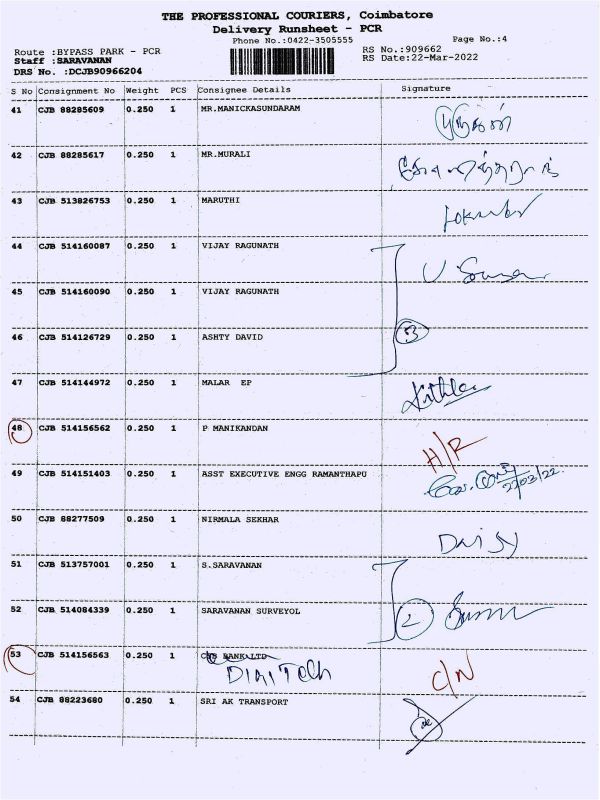 THE PROFESSIONAL COURIERS, Coimbatore
Delivery Runsheet - PCR
Phone No.:0422-3505555
Page No.:4
Route :BYPASS PARK - PCR
RS No.:909662
Staff :SARAVANAN
RS Date:22-Mar-2022
DRS No. :DCJB90966204
S No Consignment No Weight PCS Consignee Details Signature
41 CJB 88285609 0.250 1 MR.MANICKASUNDARAM
42 CJB 88285617 0.250 1 MR.MURALI
43 CJB 513826753 0.250 1 MARUTHI
44 CJB 514160087 0.250 1 VIJAY RAGUNATH
45 CJB 514160090 0.250 1 VIJAY RAGUNATH
46 CJB 514126729 0.250 1 ASHTY DAVID 3
47 CJB 514144972 0.250 1 MALAR EP
48 CJB 514156562 0.250 1 P MANIKANDAN H/R
49 CJB 514151403 0.250 1 ASST EXECUTIVE ENGG RAMANTHAPU 22/03/22
50 CJB 88277509 0.250 1 NIRMALA SEKHAR Daisy
51 CJB 513757001 0.250 1 S.SARAVANAN
52 CJB 514084339 0.250 1 SARAVANAN SURVEYOL 2
53 CJB 514156563 0.250 1 BANK LTD C/N
DIGITech
54 CJB 88223680 0.250 1 SRI AK TRANSPORT